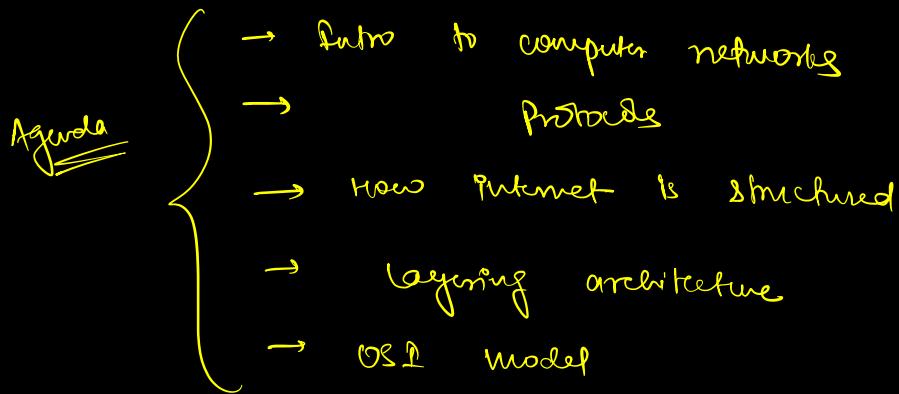 Agenda
→ Intro to computer networks
→ Protocols
→ How internet is structured
→ Layering architecture
→ OSI model